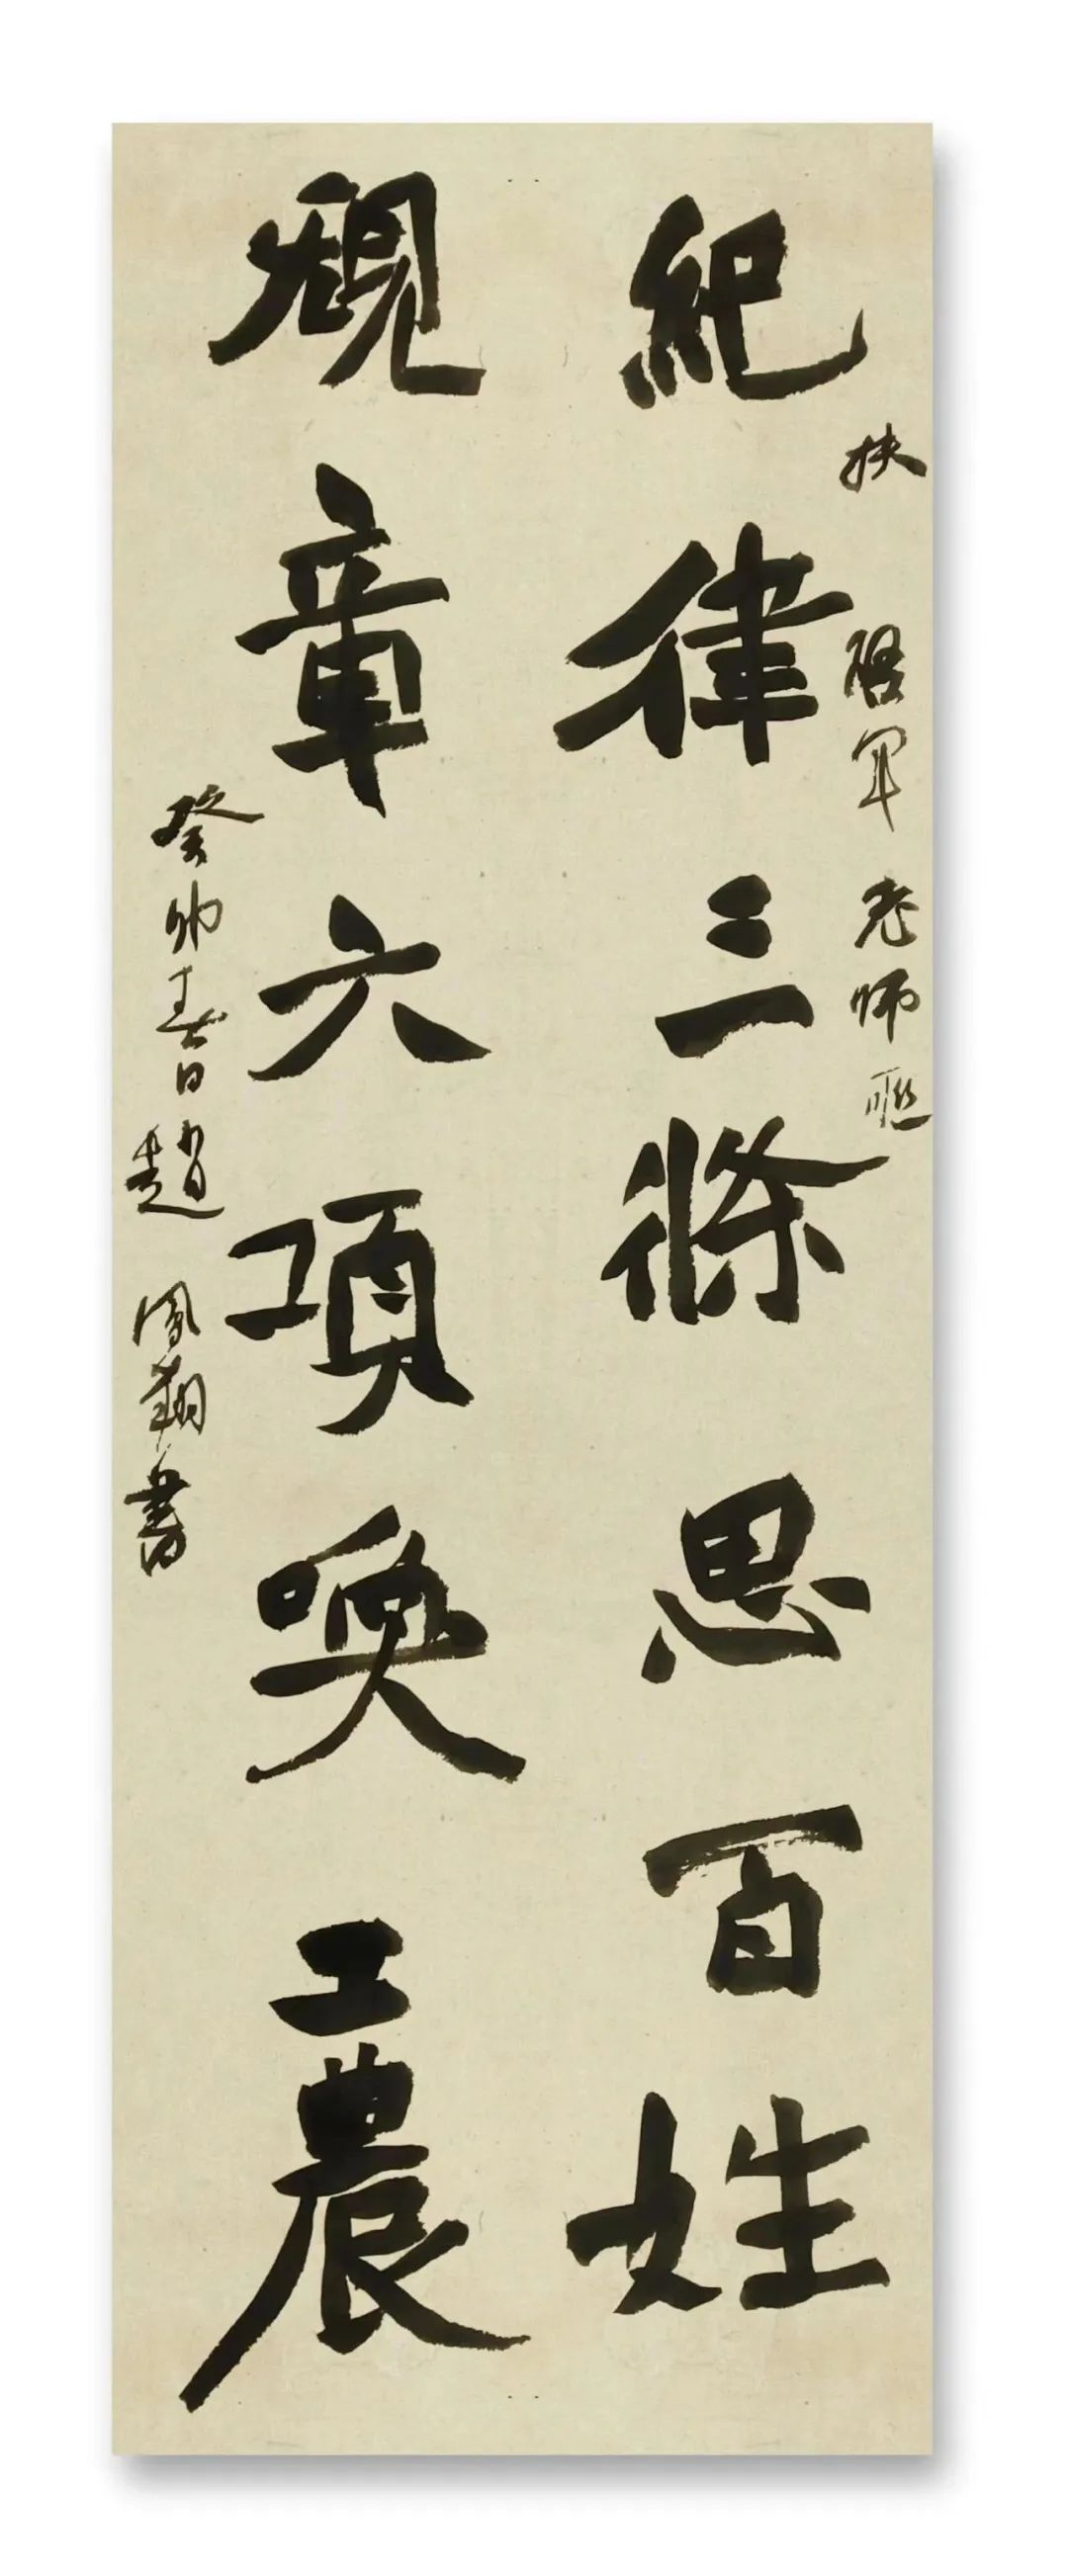 紀律三條思百姓
扶 啓軍老師聯
規章六項喚工農
癸卯春日趙鳳翔書